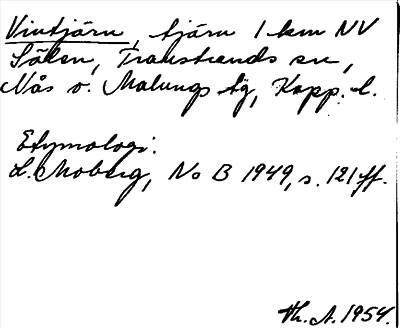 Vintjärn, tjärn 1 km NV
Sälen, Transtrands sn,
Nås o. Malungs tg, Kopp. l.
Etymologi:
L. Moberg, No B 1949, s. 121 ff.
Th. A. 1954.